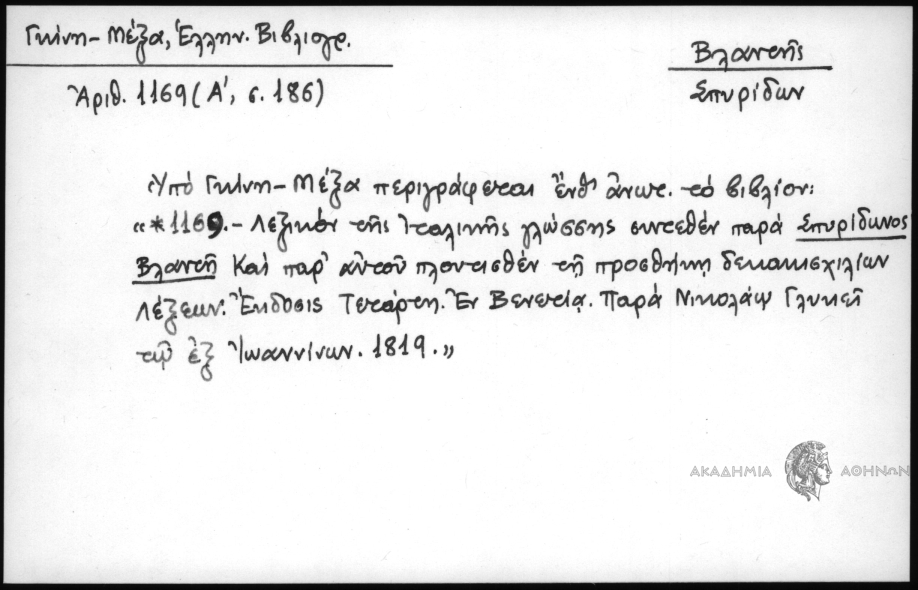 Γκίνη-Μέξα, Ἑλλην. Βιβλιογρ.
Ἀριθ. 1169 (Α', σ. 186)
Βλαντῆς
Σπυρίδων
Ὑπό Γκίνη-Μέξα περιγράφεται ἔνθ' ἀνωτ. τό βιβλίον:
«*1169.- Λεξικόν τῆς Ἰταλικῆς γλώσσης συντεθέν παρά Σπυρίδωνος
Βλαντῆ Καί παρ' αὐτοῦ πλουτισθέν τῇ προσθήκῃ δεκακισχιλίων
Λέξεων. Ἔκδοσις Τετάρτη. Ἐν Βενετίᾳ. Παρά Νικολάῳ Γλυκεῖ
τῷ ἐξ Ἰωαννίνων. 1819.»
ΑΚΑΔΗΜΙΑ ΑΘΗΝΩΝ